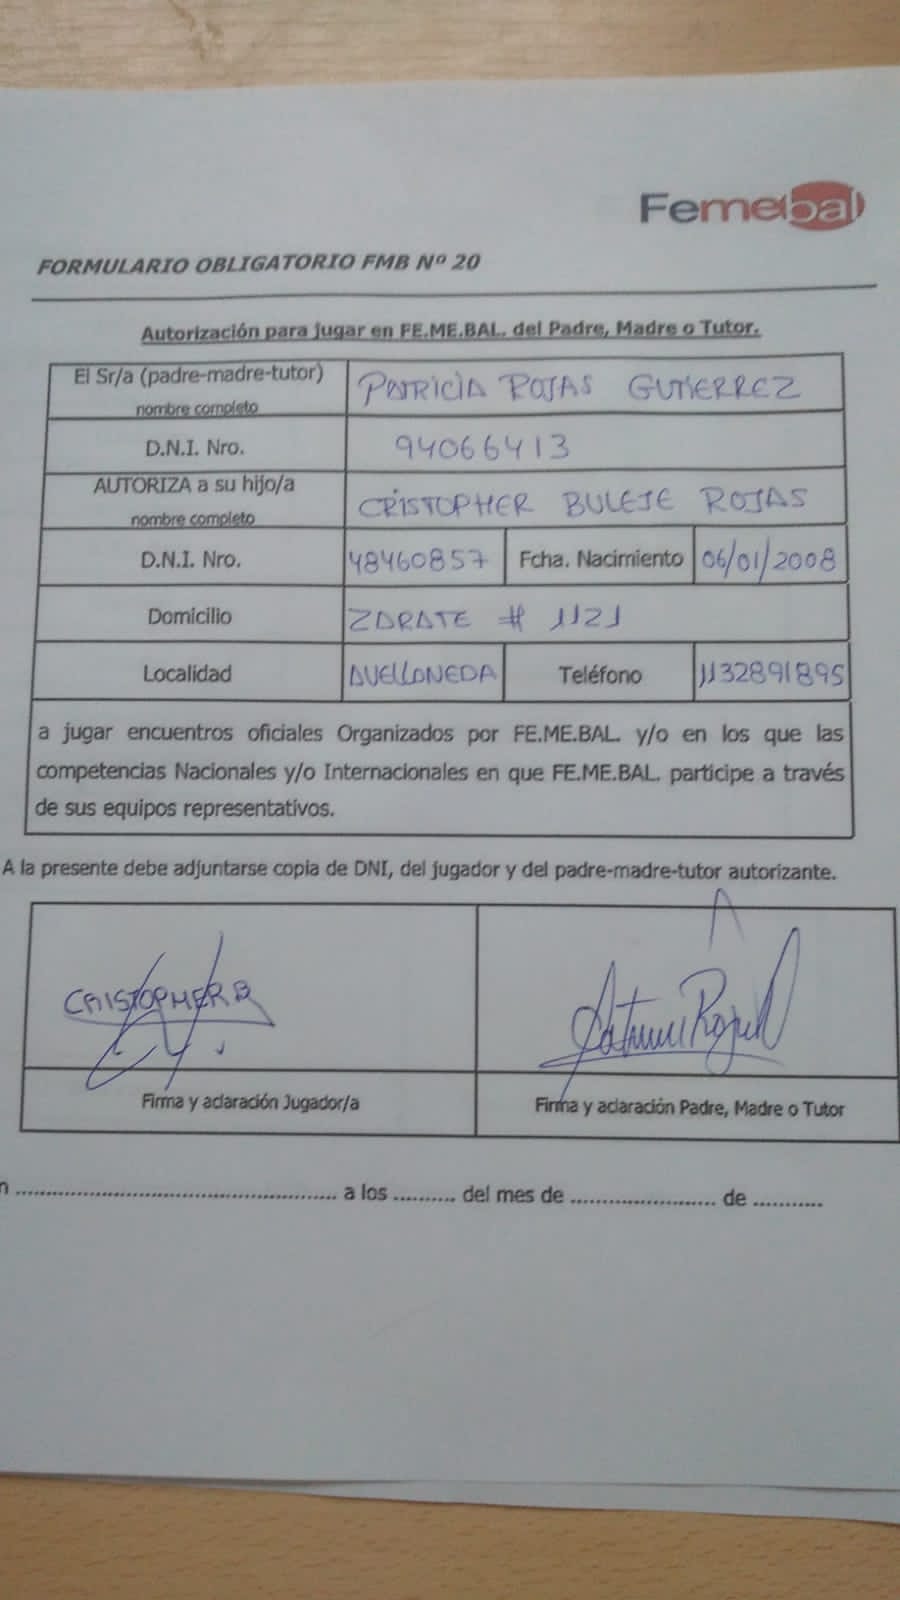 Femebal
FORMULARIO OBLIGATORIO FMB Nº 20
Autorización para jugar en FE.ME.BAL. del Padre, Madre o Tutor.
El Sr/a (padre-madre-tutor) nombre completo PATRICIA ROJAS GUTIERREZ
D.N.I. Nro. 94066413
AUTORIZA a su hijo/a nombre completo CRISTOPHER BULEJE ROJAS
D.N.I. Nro. 48460857 Fcha. Nacimiento 06/01/2008
Domicilio ZARATE # 1121
Localidad AVELLANEDA Teléfono 1132891895
a jugar encuentros oficiales Organizados por FE.ME.BAL. y/o en los que las
competencias Nacionales y/o Internacionales en que FE.ME.BAL. participe a través
de sus equipos representativos.
A la presente debe adjuntarse copia de DNI, del jugador y del padre-madre-tutor autorizante.
CRISTOPHER B
Firma y aclaración Jugador/a Firma y aclaración Padre, Madre o Tutor
n ................................................ a los .......... del mes de ...................... de ...........